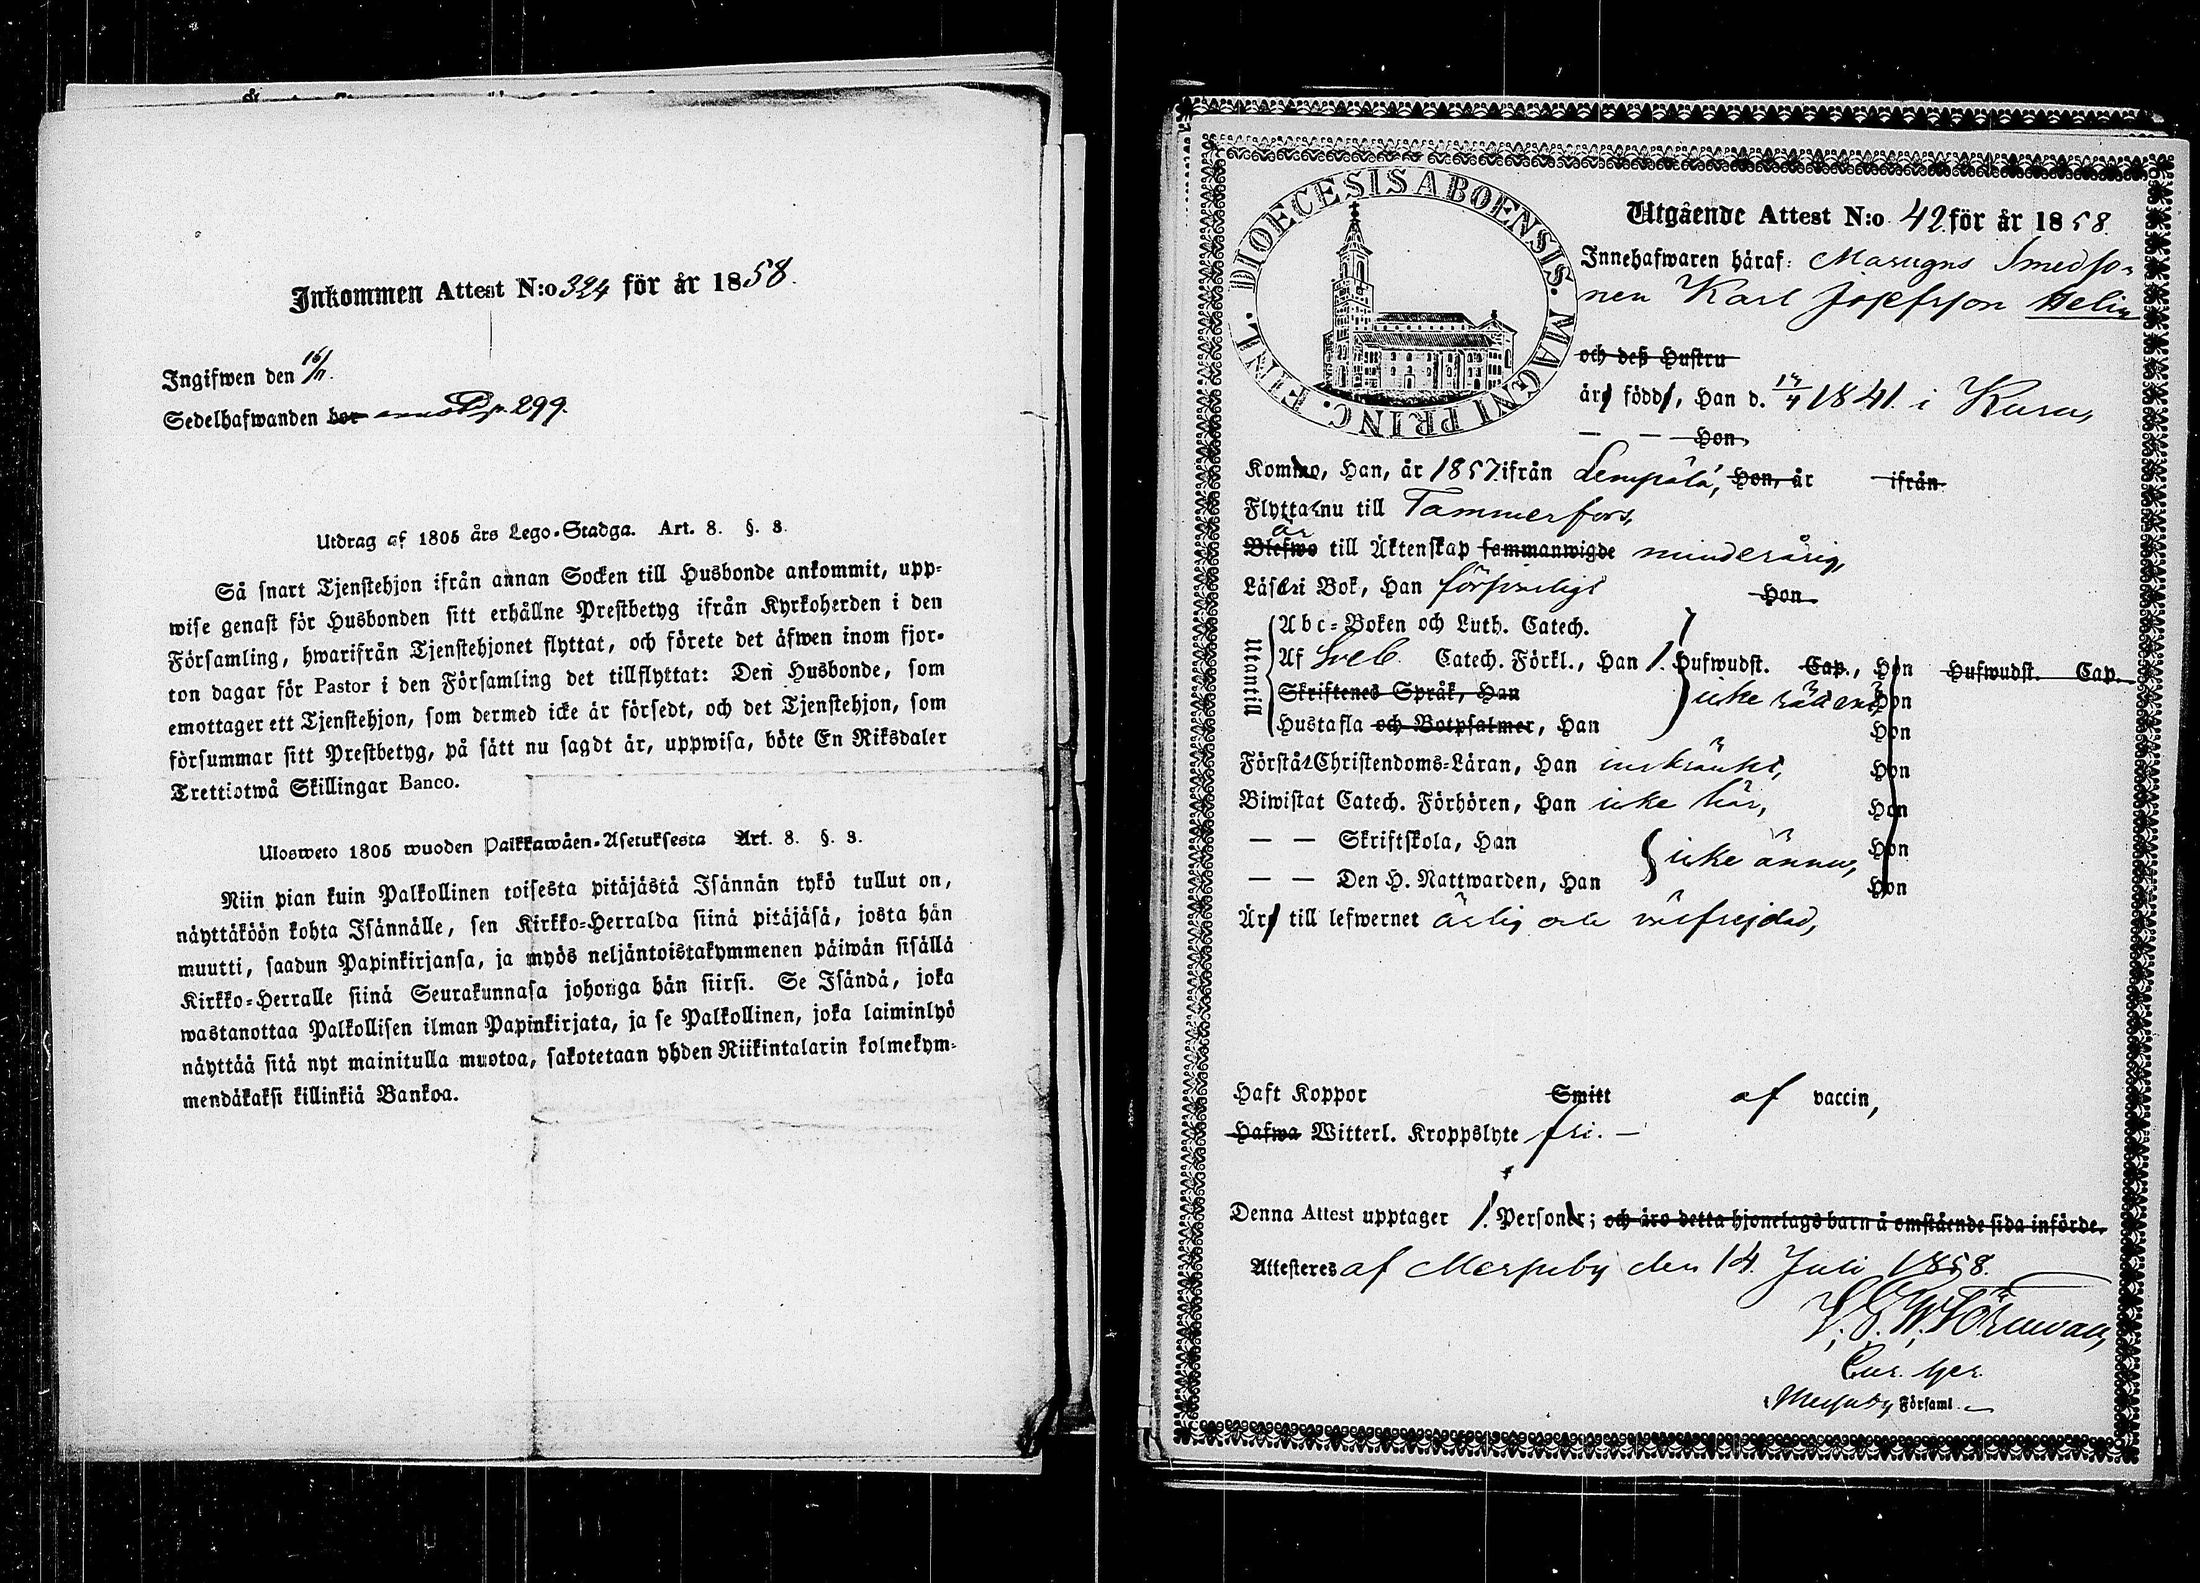 Inkommen Attest N:o 324 för år 1858.
Ingifwen den 16/11.
Sedelhafwanden bor 299.
Utdrag af 1805 års Lego-Stadga. Art. 8. §. 3.
Så snart Tjenstehjon ifrån annan Socken till Husbonde ankommit, upp-
wise genast för Husbonden sitt erhållne Prestbetyg ifrån Kyrkoherden i den
Församling, hwarifrån Tjenstehjonet flyttat, och förete det äfwen inom fjor-
ton dagar för Pastor i den Församling det tillflyttat: Den Husbonde, som
emottager ett Tjenstehjon, som dermed icke är försedt, och det Tjenstehjon, som
försummar sitt Prestbetyg, på sätt nu sagdt är, uppwisa, böte En Riksdaler
Trettiotwå Skillingar Banco.
Ulosweto 1805 wuoden Palkkawäen-Asetuksesta Art. 8. §. 3.
Niin pian kuin Palkollinen toisesta pitäjästä Isännän tykö tullut on,
näyttäköön kohta Isännälle, sen Kirkko-Herralda siinä pitäjäsä, josta hän
muutti, saadun Papinkirjansa, ja myös neljäntoistakymmenen päiwän sisällä
Kirkko-Herralle siinä Seurakunnasa johonga hän siirsi. Se Isändä, joka
wastanottaa Palkollisen ilman Papinkirjata, ja se Palkollinen, joka laiminlyö
näyttää sitä nyt mainitulla muotoa, sakotetaan yhden Riikintalarin kolmekym-
mendäkaksi killinkiä Bankoa.
DIOECESIS ABOENSIS. MAGNI PRINC. FINL.
Utgående Attest N:o 42 för år 1858.
Innehafwaren häraf: Masugns Smedso-
nen Karl Josefsson Helin
och deß Hustru
äro födde, Han d. 1841. i Kuru,
— — Hon,
Kommo, Han, år 1857. ifrån Lempälä, Hon, år ifrån
Flytta nu till Tammerfors,
är
Blefwo till Äktenskap sammanwigde minderårig,
Läser i Bok, Han försvarligt Hon
Utantill
Abc-Boken och Luth. Catech.
Af Sveb. Catech. Förkl., Han 1. Hufwudst. Cap., Hon Hufwudst. Cap.
Skriftenes Språk, Han icke Hon
Hustafla och Botpsalmer, Han Hon
Förstår Christendoms-Läran, Han inskränkt, Hon
Biwistat Catech. Förhören, Han icke här, Hon
— — Skriftskola, Han icke ännu, Hon
— — Den H. Nattwarden, Han Hon
Äro till lefwernet ärlig och välfrejdad,
Haft Koppor Smitt af vaccin,
Hafwa Witterl. Kroppslyte fri. —
Denna Attest upptager 1. Personer; och äro detta hjonelags barn å omstående sida införde.
Attesteres af Messuby den 14. Juli 1858.
Cur. ger.
i Messuby Församl. —